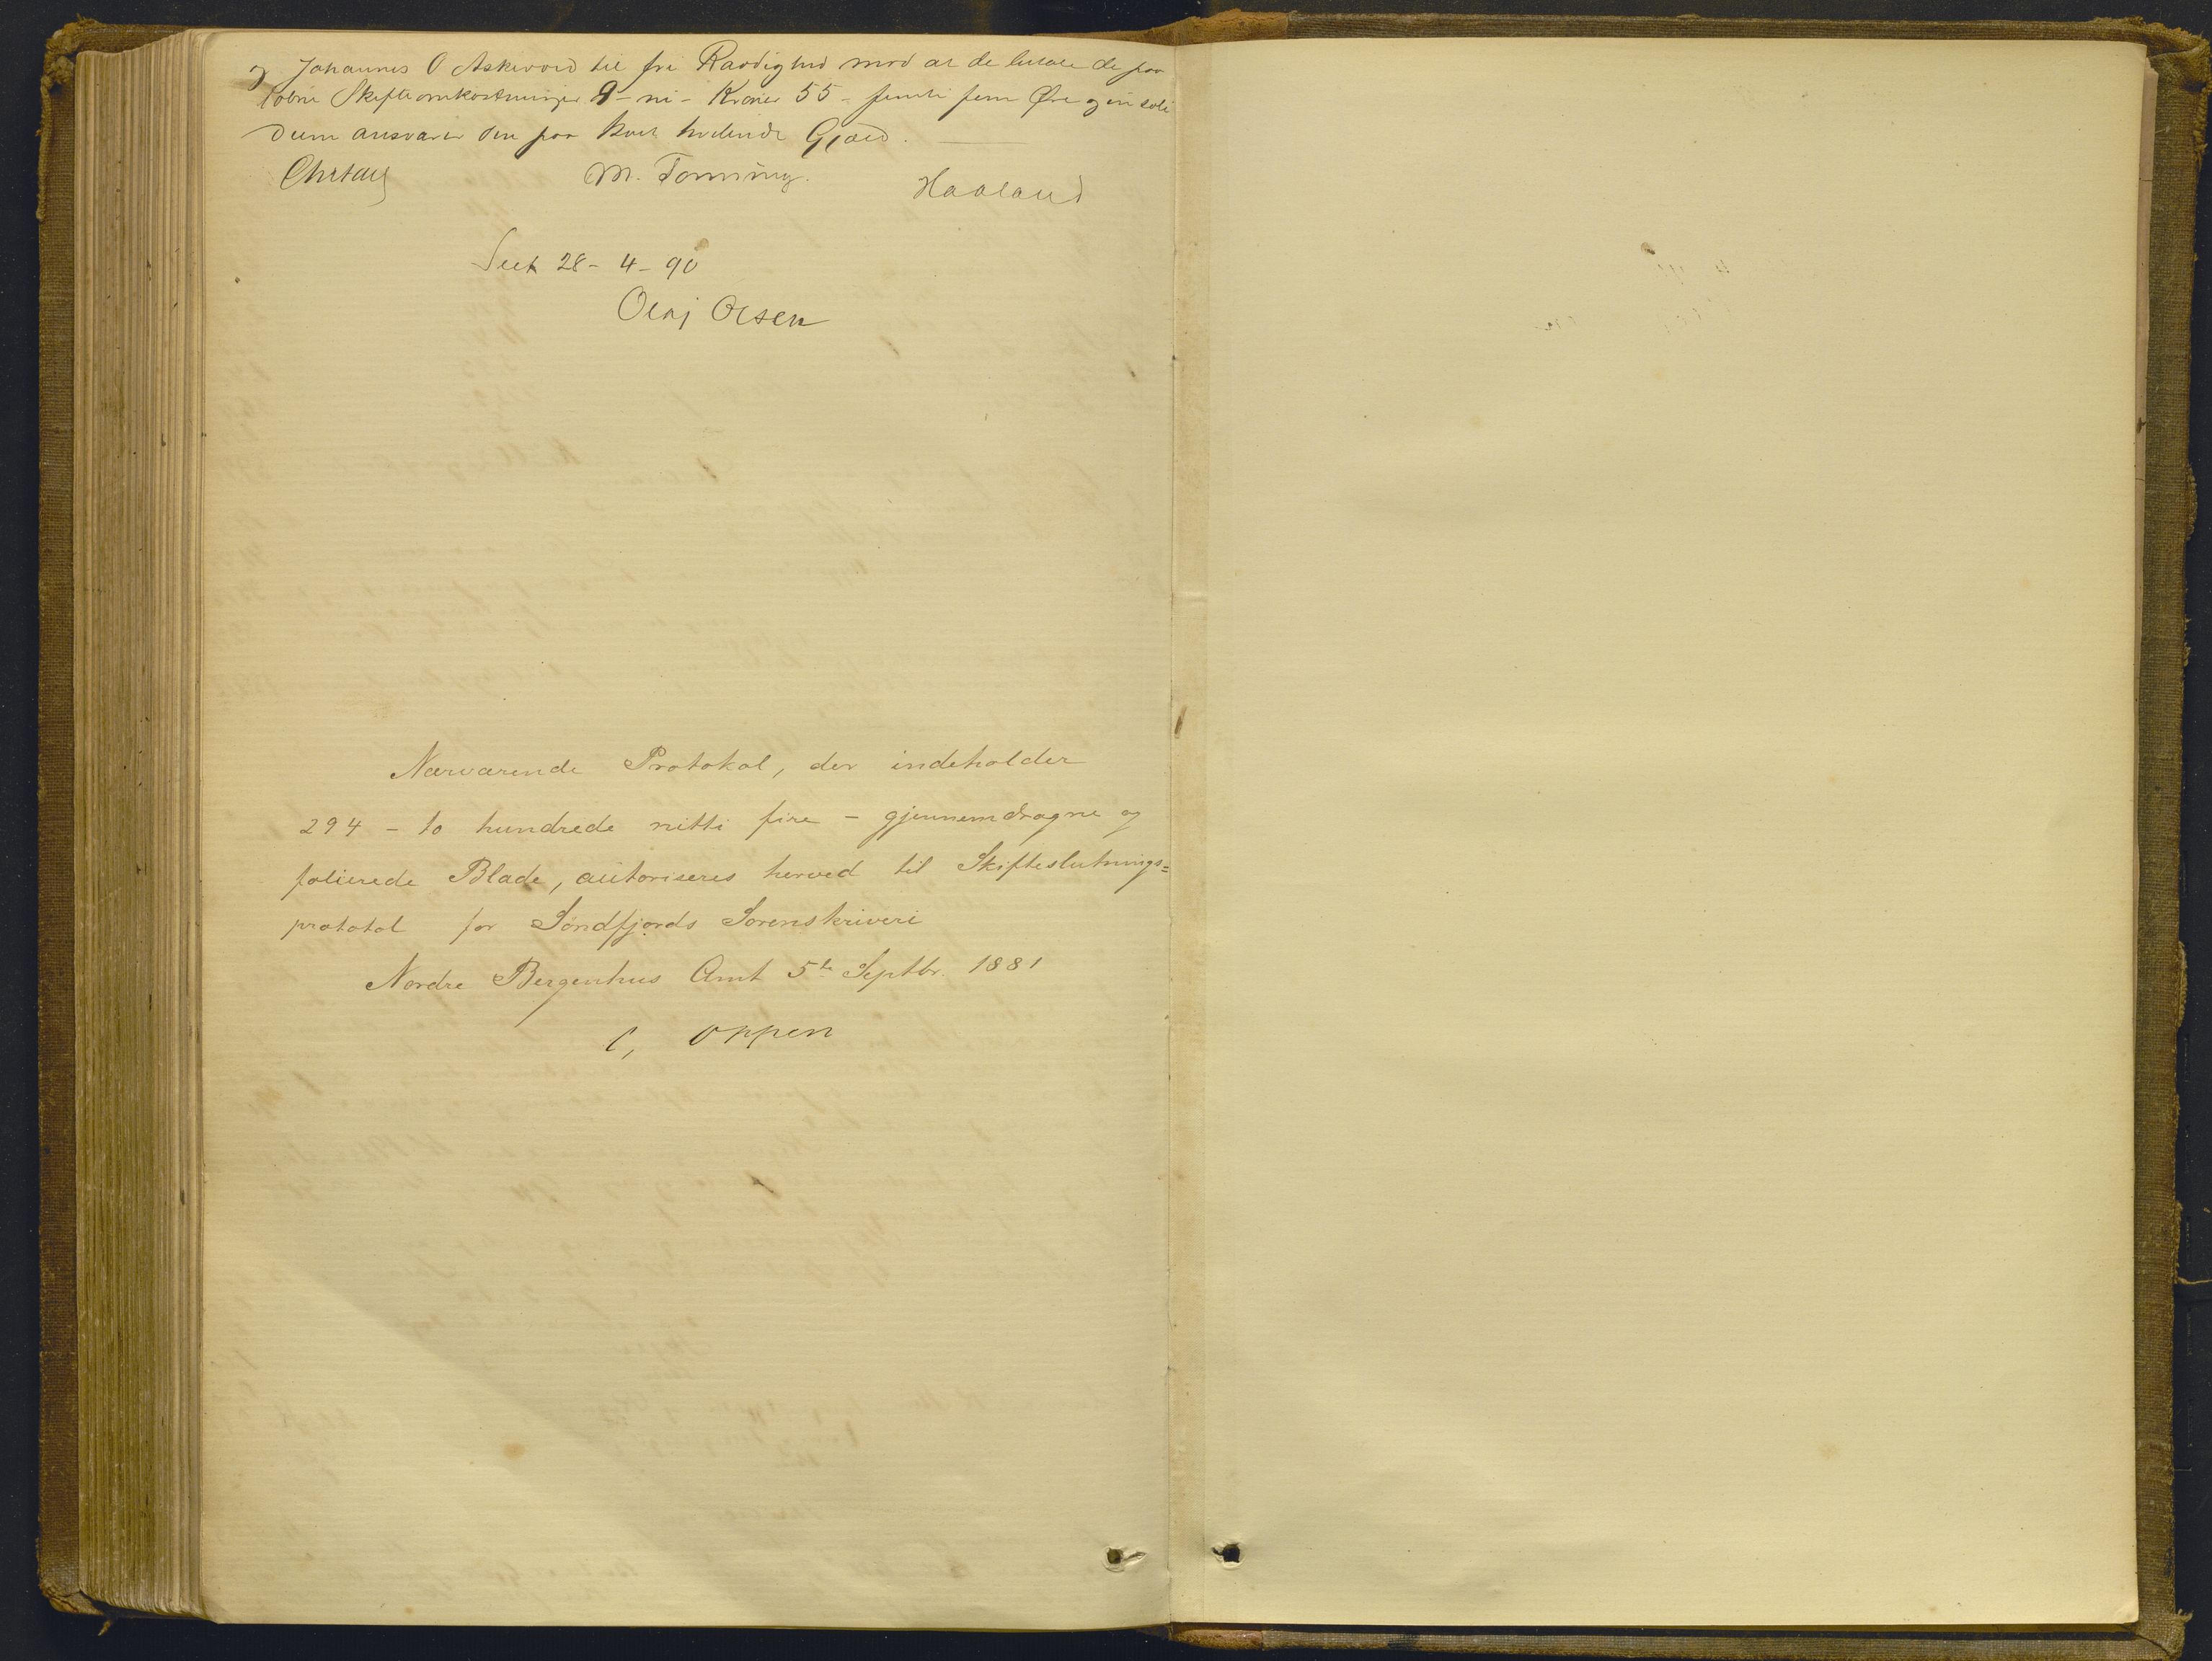 og Johannes O Askevold til fri Raadighed mod at de betale de paa
løbne Skifteomkostninger 9 - ni - Kroner 55 - femti fem Øre og in soli
dum ansvarer den paa Boet hvilende Gjæld.
M. Tonning.
Haaland
Seet 28 - 4 - 90
Olaj Olsen
Nærværende Protokol, der indeholder
294 - to hundrede nitti fire - gjennemdragne og
folierede Blade, autoriseres herved til Skifteslutnings=
protokol for Søndfjords Sorenskriveri
Nordre Bergenhus Amt 5te Septbr. 1881
C, Oppen